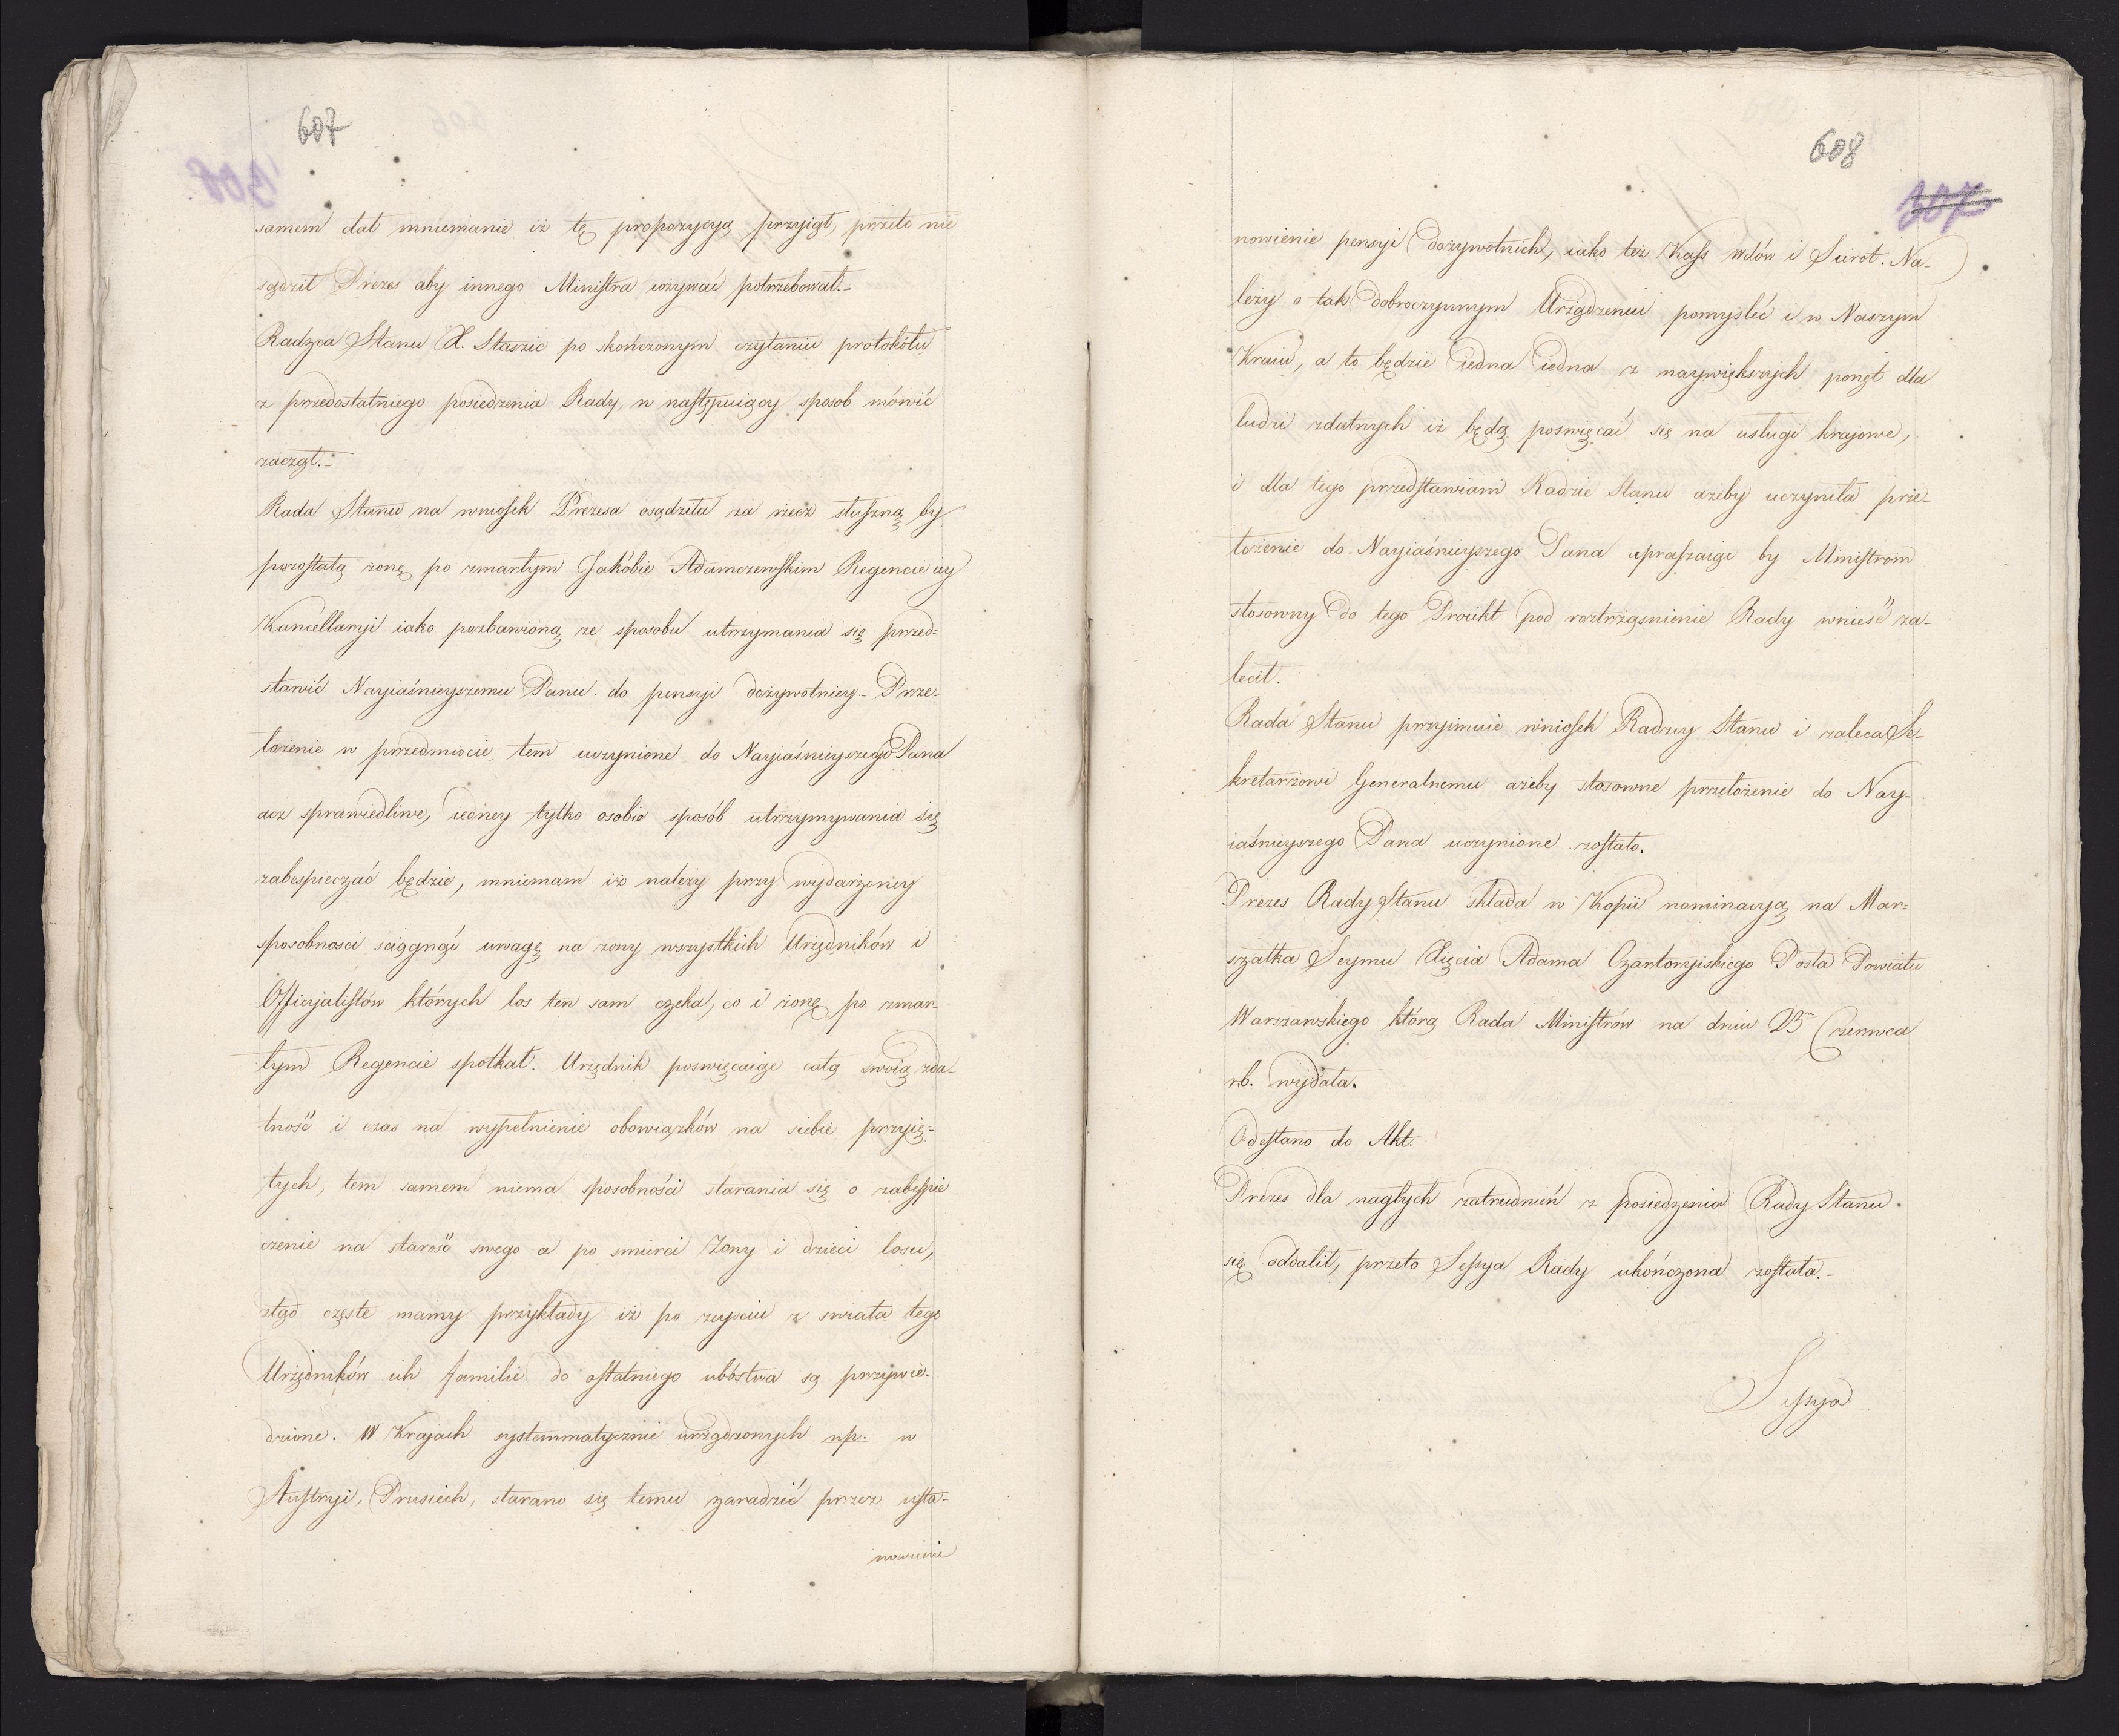 607
samem dał mniemanie iż tę propozycyą przyiął, przeto nie
sądził Prezes aby innego Ministra wzywać potrzebował.-
Radzca Stanu X. Staszic po skończonym czytaniu protokółu
z przedostatniego posiedzenia Rady, w następuiący sposob mówić
zaczął.-
Rada Stanu na wniosek Prezesa osądziła za rzecz słuszną by
pozostałą żonę po zmarłym Jakóbie Adamczewskim Regencie iey
Kancellaryi iako pozbawioną ze sposobu utrzymania się przed=
stawić Nayiaśnieyszemu Panu do pensyi dożywotniey- Prze-
łożenie w przedmiocie tem uczynione do Nayiaśnieyszego Pana
acz sprawiedliwe, iedney tylko osobie sposób utrzymywania się
zabespieczać będzie, mniemam iż należy przy wydarzoney
sposobnosci sciągnąć uwagę na żony wszystkich Urzędników i
Officyjalistów których los ten sam czeka, co i żonę po zmar-
łym Regencie spotkał. Urzędnik poswięcaiąc całą swoią zda-
tność i czas na wypełnienie obowiązków na siebie przyię-
tych, tem samem niema sposobności starania się o zabespie
czenie na starość swego a po smierci Żony i dzieci losu,
ztąd częste mamy przykłady iż po zeysciu z swiata tego
Urzędników ich familie do ostatniego ubóstwa są przywie-
dzione. W Krajach systemmatycznie urządzonych np. w
Austryi, Prusiech, starano się temu zaradzić przez usta-
nowienie
608
307
nowienie pensyi dożywotnich, iako też Kass Wdów i Sierot. Na-
leży o tak dobroczynnym Urządzeniu pomyślić i w Naszym
Kraiu, a to będzie iedna iedna z naywiększych ponęt dla
ludzi zdatnych iż będą poswięcać się na usługi krajowe,
i dla tego przedstawiam Radzie Stanu ażeby uczyniła prze-
łożenie do Nayiaśnieyszego Pana upraszaiąc by Ministrom
stosowny do tego Proiekt pod roztrząsnienie Rady wnieść za-
lecił.
Rada Stanu przyimuie wniosek Radzcy Stanu i zaleca Se-
kretarzowi Generalnemu ażeby stosowne przełożenie do Nay-
iaśnieyszego Pana uczynione zostało.
Prezes Rady Stanu składa w Kopii nominacyą na Mar=
szałka Seymu Xięcia Adama Czartoryiskiego Posła Powiatu
Warszawskiego którą Rada Ministrów na dniu 25 Czerwca
rb. wydała.
Odesłano do Akt.
Prezes dla nagłych zatrudnień z posiedzenia Rady Stanu
się oddalił, przeto Sessya Rady ukończona została.-
Sessya